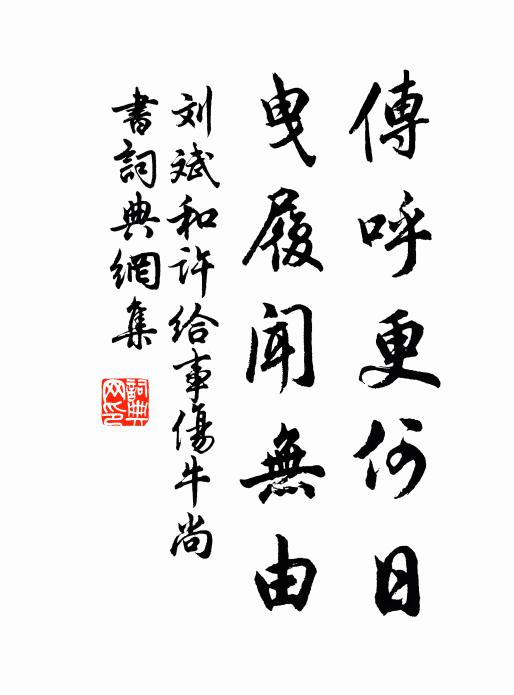 傳呼更何日
曳履聞無由
刘斌和许给事傷牛尚
書詞典網集
詞典
网印